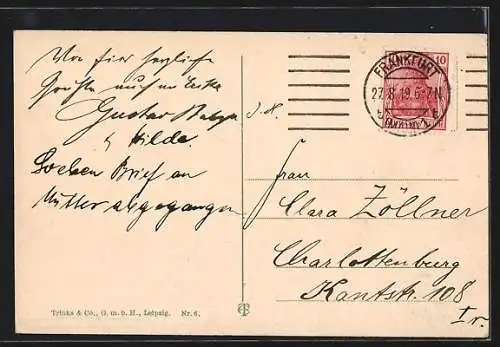 Von hier herzliche
Grüße auch an
Gustav
& Hilde.
Soeben Brief an
Mutter abgegangen
Trinks & Co., G. m. b. H., Leipzig. Nr. 6.
FRANKFURT
27.8.19.6-7N
10
Frau
Clara Zöllner
Charlottenburg
Kantstr. 108
Ir.